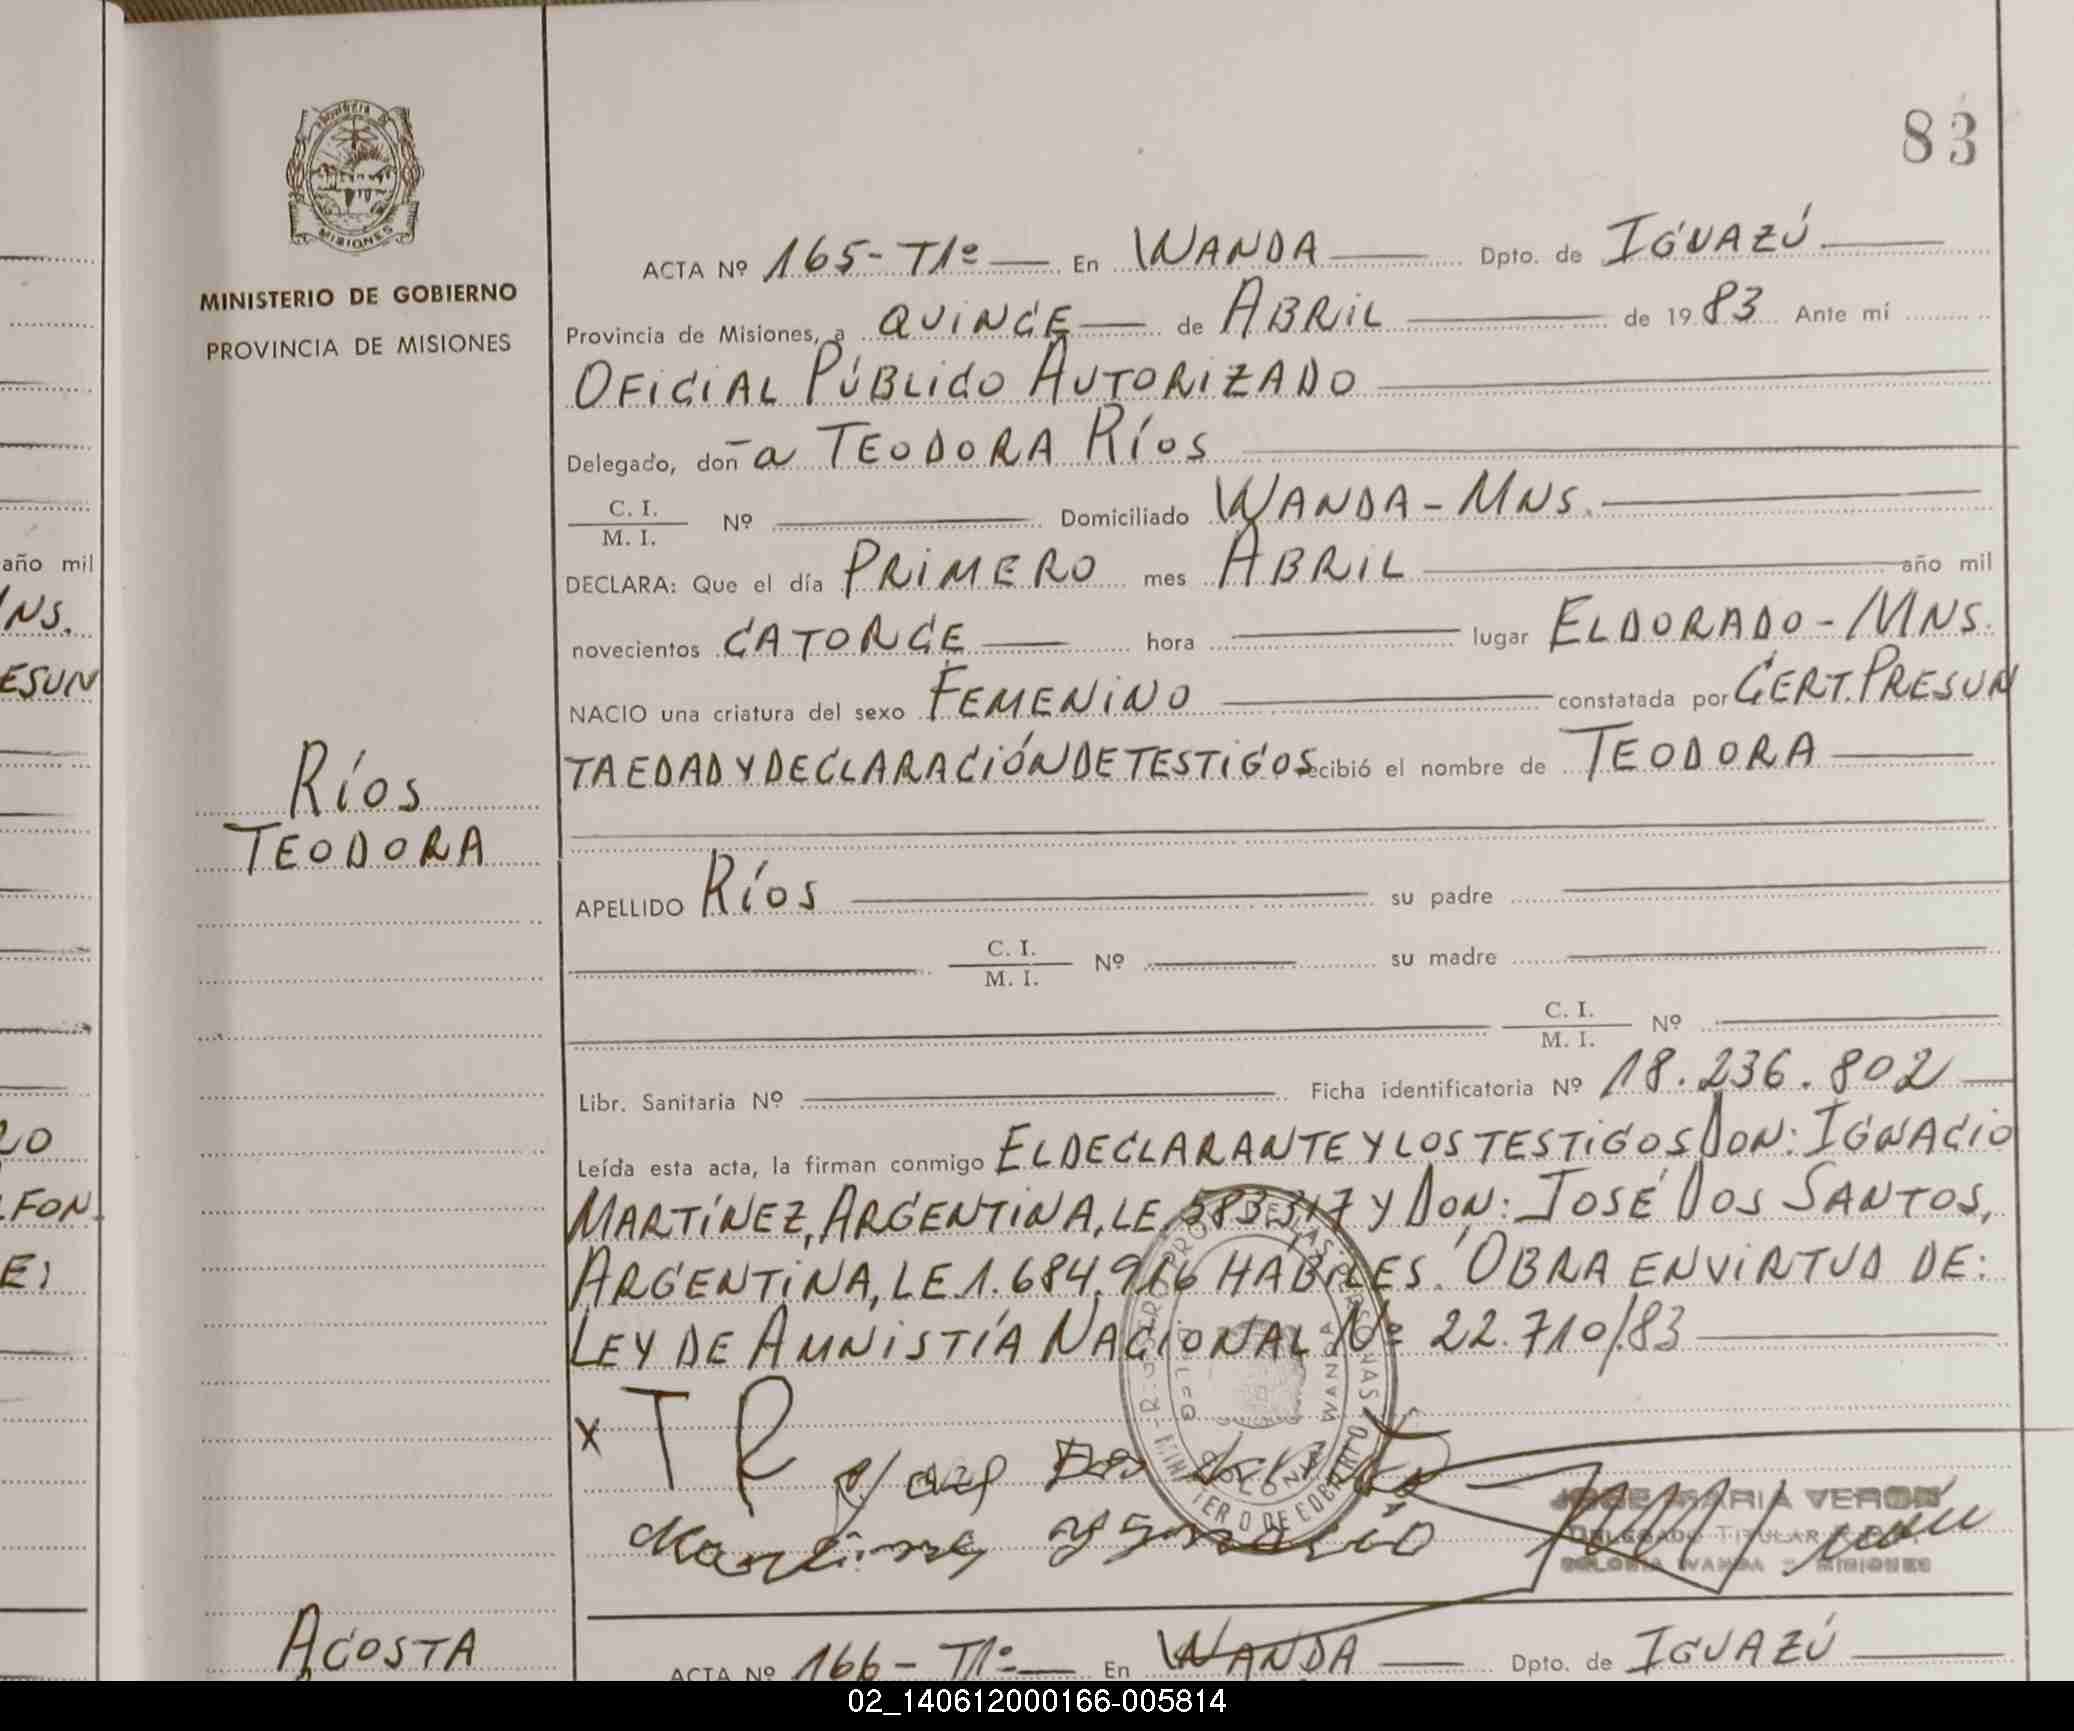 83
MISIONES
MINISTERIO DE GOBIERNO
PROVINCIA DE MISIONES
ACTA Nº 165-T1º En WANDA Dpto. de IGUAZÚ
Provincia de Misiones, a QUINCE de ABRIL de 1983 Ante mí
OFICIAL PÚBLICO AUTORIZADO
Delegado, doña TEODORA RÍOS
C. I.
M. I. Nº Domiciliado WANDA-MNS.
DECLARA: Que el día PRIMERO mes ABRIL año mil
novecientos CATORCE hora lugar ELDORADO-MNS.
NACIO una criatura del sexo FEMENINO constatada por CERT. PRESUN
TA EDAD Y DECLARACIÓN DE TESTIGOS ecibió el nombre de TEODORA
RÍOS
TEODORA
APELLIDO RÍOS su padre
C. I.
M. I. Nº su madre
C. I.
M. I. Nº
Libr. Sanitaria Nº Ficha identificatoria Nº 18.236.802
Leída esta acta, la firman conmigo EL DECLARANTE Y LOS TESTIGOS DON: IGNACIO
MARTÍNEZ, ARGENTINA, LE. 583.317 Y DON: JOSÉ DOS SANTOS,
ARGENTINA, LE 1.684.916 HÁBILES. OBRA EN VIRTUD DE:
LEY DE AMNISTÍA NACIONAL Nº 22.710/83
X T R
JOSE MARIA VERON
DELEGADO TITULAR
COLONIA WANDA - MISIONES
ACOSTA
ACTA Nº 166-T1º En WANDA Dpto. de IGUAZÚ
año mil
NS.
ESUN
FON.
02_140612000166-005814